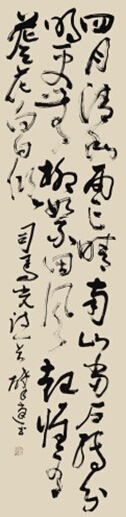 四月清和雨乍晴南山當戶轉分
明更無柳絮因風起惟有
葵花向日傾
司馬光詩一首 書